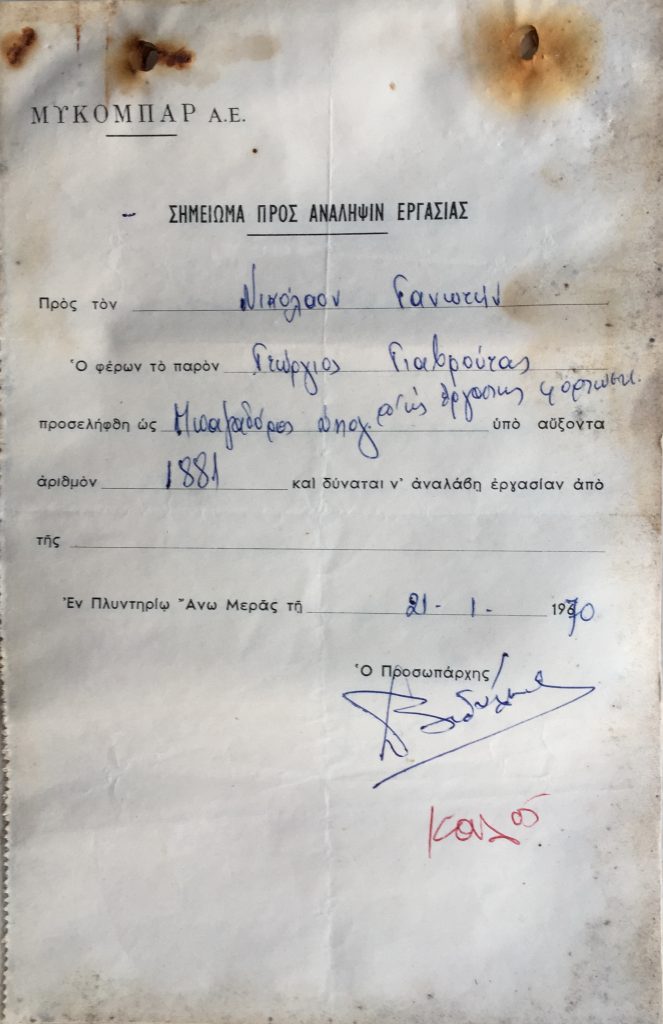 ΜΥΚΟΜΠΑΡ Α.Ε.
- ΣΗΜΕΙΩΜΑ ΠΡΟΣ ΑΝΑΛΗΨΙΝ ΕΡΓΑΣΙΑΣ
Πρὸς τὸν Νικόλαον Γανωτήν
Ὁ φέρων τὸ παρὸν Γεώργιος Γιαβρούτας
προσελήφθη ὡς ὑπὸ αὔξοντα
ἀριθμὸν 1881 καὶ δύναται ν' ἀναλάβῃ ἐργασίαν ἀπὸ
τῆς
Ἐν Πλυντηρίῳ Ἄνω Μερᾶς τῇ 21 - 1 - 1970
Ὁ Προσωπάρχης